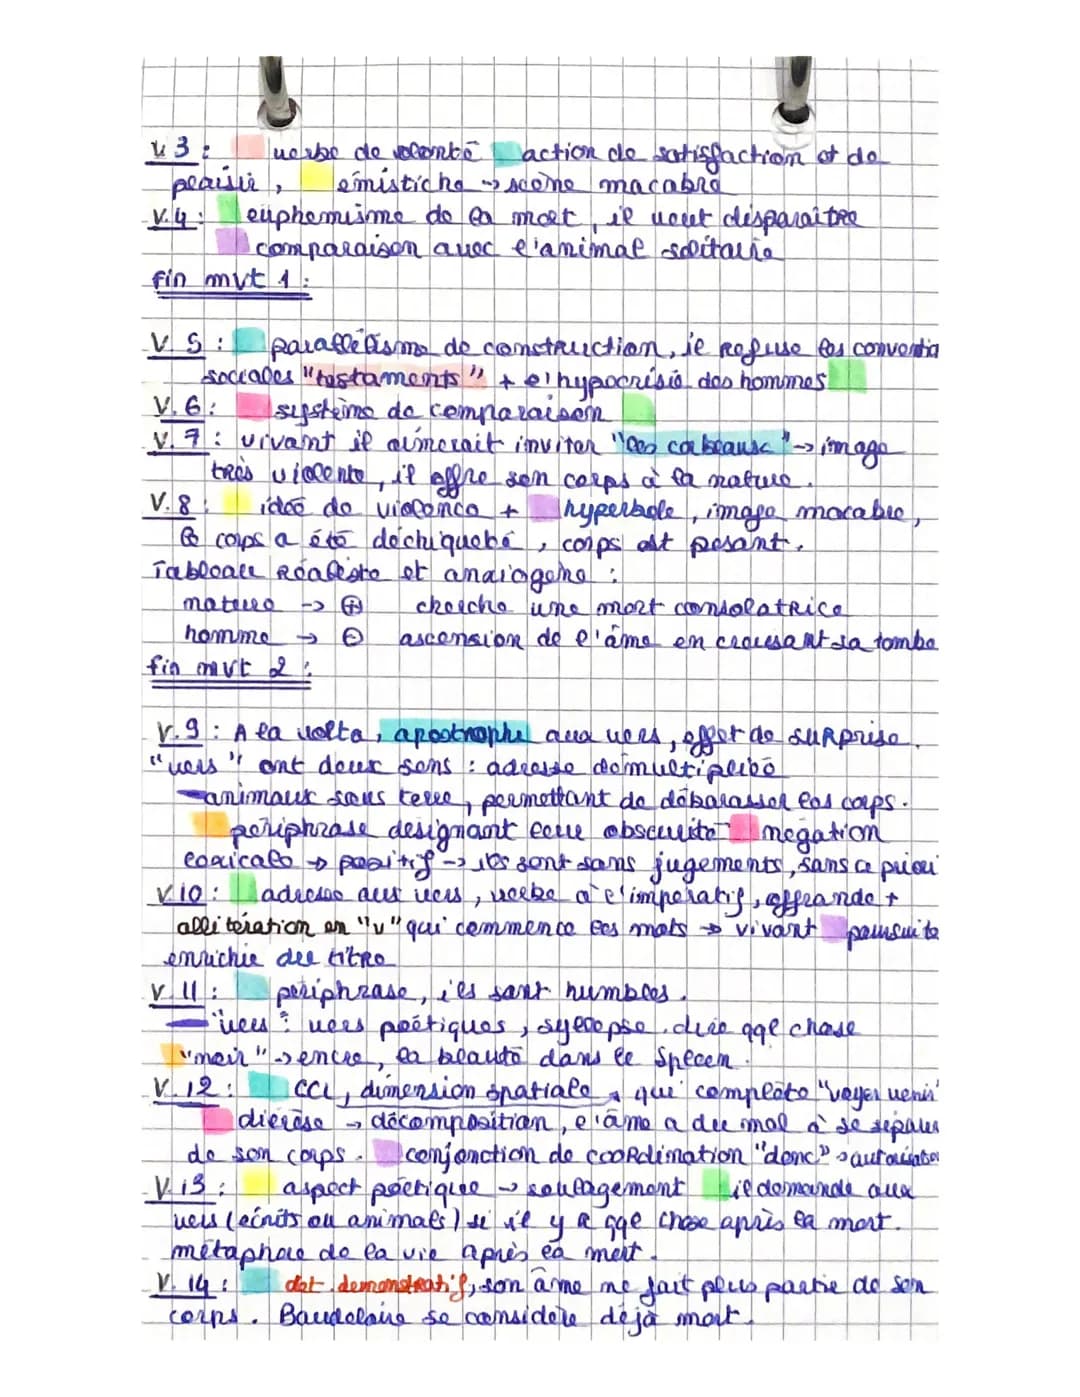 V.3 : verbe de volonté action de satisfaction et de
plaisir, émistiche → scène macabre
V.4 : euphemisme de la mort, il veut disparaître
comparaison avec l'animal solitaire
fin mvt 1 :
V.5 : parallélisme de construction, je refuse les conventio
sociales "testaments" + l'hypocrisie des hommes
V.6 : système de comparaison
V.7 : vivant il aimerait inviter "les corbeaux" → image
très violente, il offre son corps à la nature.
V.8 : idée de violence + hyperbole, image macabre,
le corps a été déchiqueté, corps est pesant.
Tableau réaliste et :
nature → ⊕ cherche une mort consolatrice
homme → ⊖ ascension de l'âme en creusant sa tombe
fin mvt 2 :
V.9 : A la volta, apostrophe aux vers, effet de surprise.
"vers" ont deux sens : adresse démultipliée
- animaux sous terre, permettant de débarasser les corps.
périphrase designant leur obscurité négation
lexicale → positif → ils sont sans jugements, sans a priori
V.10 : adresse aux vers, verbe à l'impératif, offrande +
allitération en "v" qui commence les mots → vivant poursuite
enrichie du titre
V.11 : périphrase, ils sont humbles.
- "vers" : vers poétiques, dire qqe chose
"noir" → encre, la beauté dans le Speen.
V.12 : CCL, dimension spatiale, qui complète "voyez venir"
dierèse → décomposition, l'âme a du mal à se séparer
de son corps. conjonction de coordination "donc" →
V.13 : aspect poétique → soulagement il demande aux
vers (écrits ou animals) si il y a qqe chose après la mort.
métaphore de la vie après la mort.
V.14 : det. demonstratif, son âme ne fait plus partie de son
corps. Baudelaire se considère déjà mort.